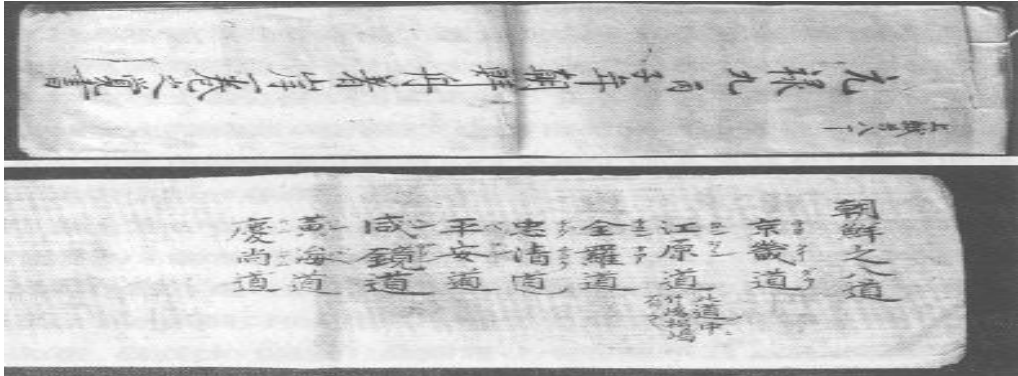 元禄九丙子年朝鮮舟着岸一巻之覚書
朝鮮之八道
京畿道
江原道
此道中ニ
竹嶋松嶋
有之
全羅道
忠清道
平安道
咸鏡道
黄海道
慶尚道